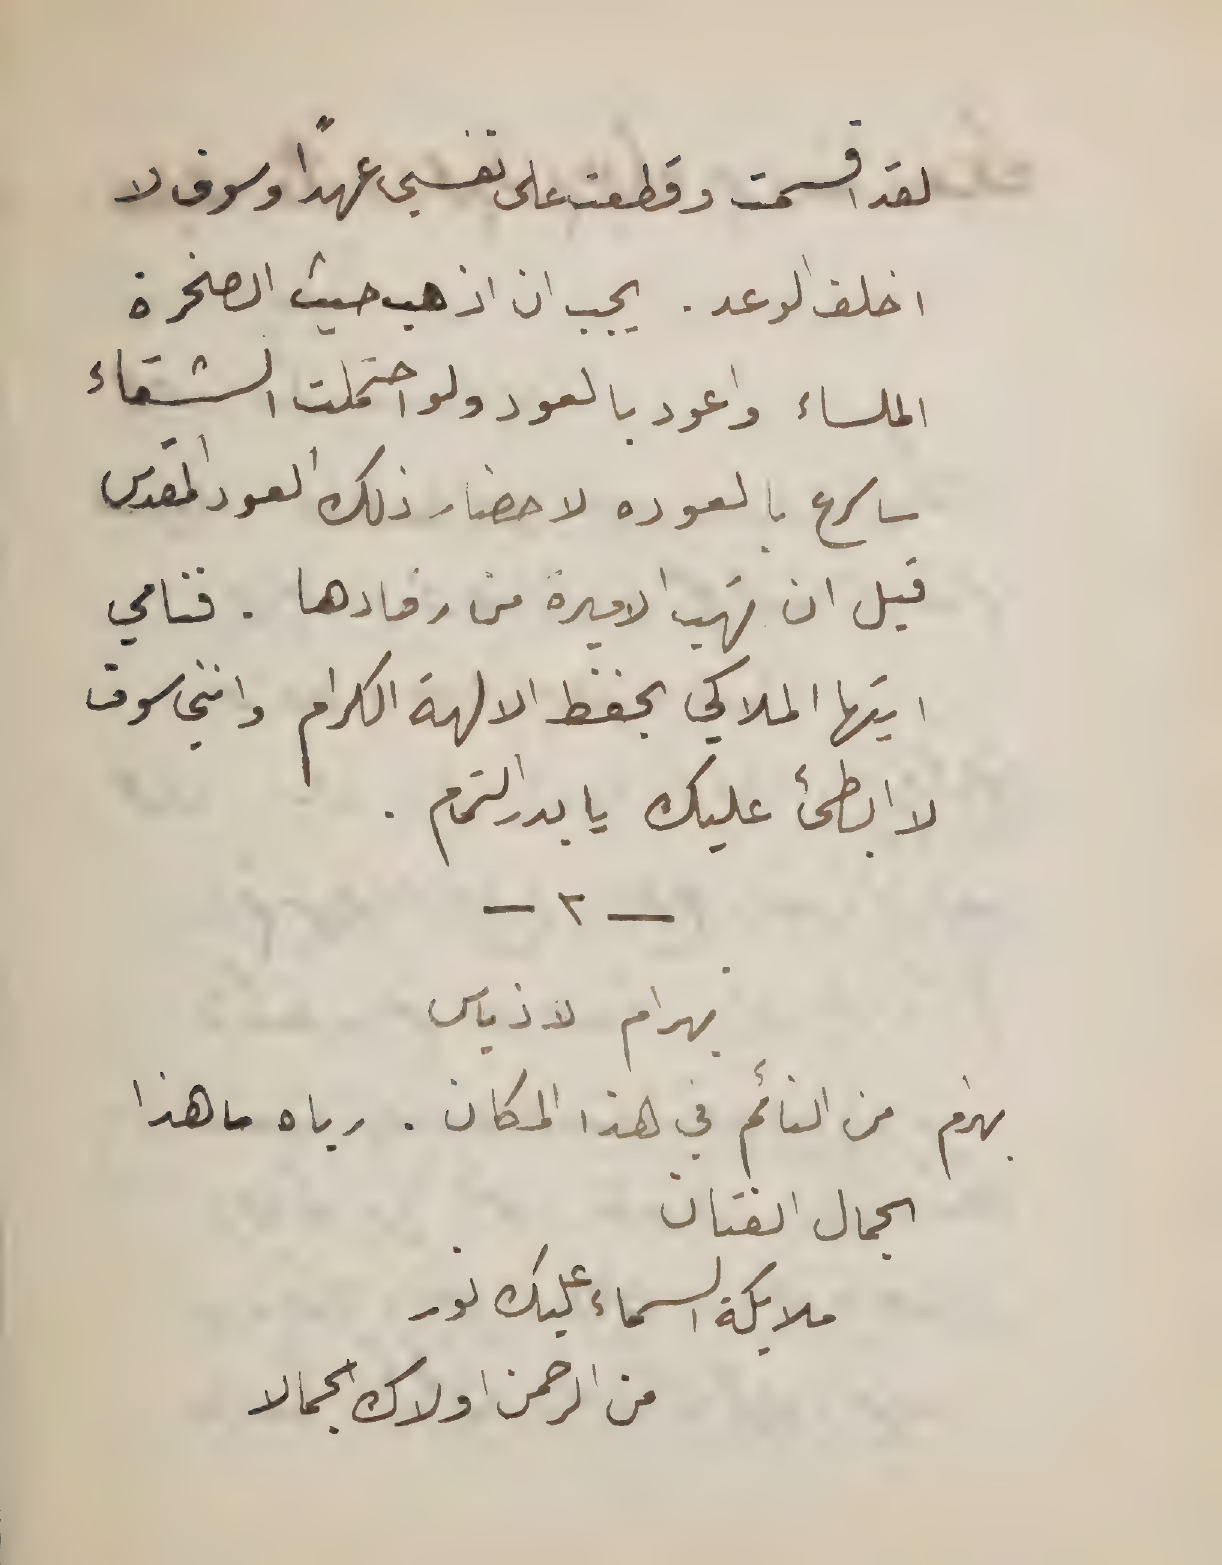 لقد اقسمت وقطعت على نفسي عهداً وسوف لا
اخلف الوعد . يجب ان اذهب حيث الصخرة
الملساء واعود بالعود ولو احتملت الشقاء
ساسرع بالعوده لاحضار ذلك العود المقدس
قبل ان تهب الاميرة من رقادها . فنامي
ايتها الملاكي بحفظ الالهة الكرام وانني سوف
لا ابطئ عليك يا بدر التمام .
— ٢ —
بهرام لاذياس
بهرام من النائم في هذا المكان . رباه ما هذا
الجمال الفتان
ملايكة السماء عليك نور
من الرحمن اولاك الجمالا